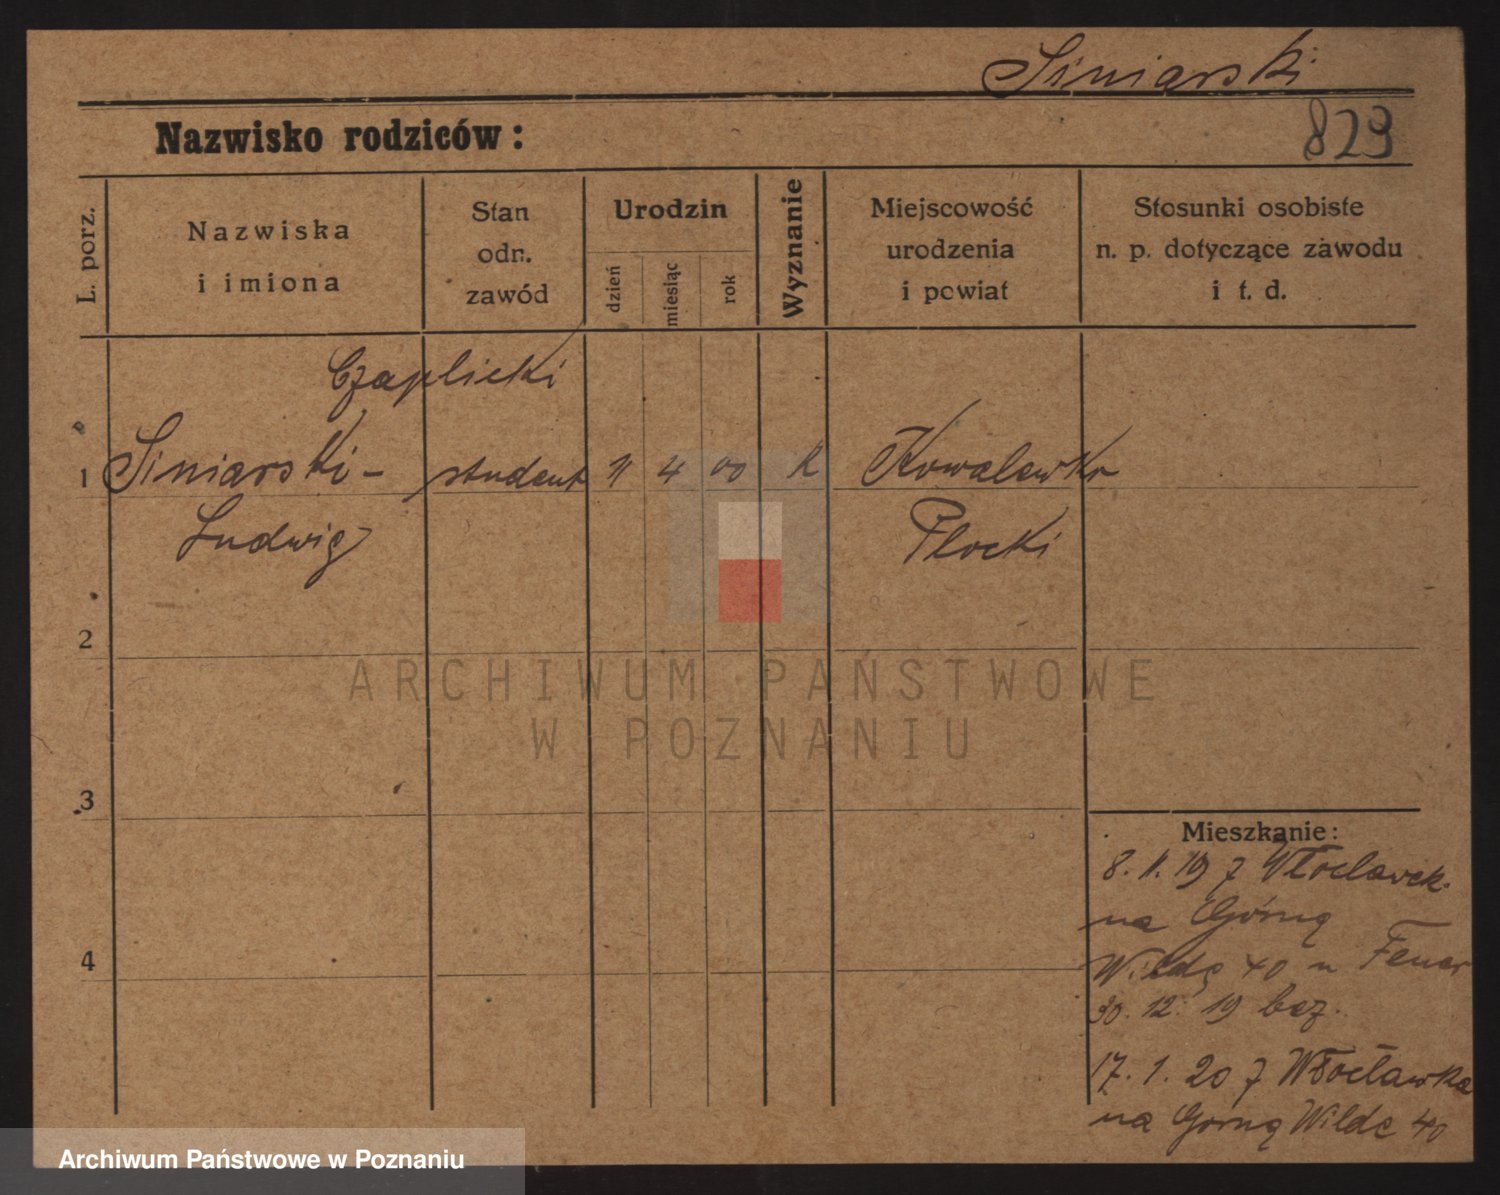 Siniarski
829
Nazwisko rodziców:
L. porz.
Nazwiska
i imiona
Stan
odn.
zawód
Urodzin
dzień
miesiąc
rok
Wyznanie
Miejscowość
urodzenia
i powiat
Stosunki osobiste
n. p. dotyczące zawodu
i t. d.
Czaplicki
1 Siniarski- student 11 4 00 K Kowalewko
Ludwig Plocki
2
3
4
ARCHIWUM PAŃSTWOWE
W POZNANIU
Mieszkanie:
8. 11. 19 z Włocławek.
na Górną
Wildę 40 u
30. 12. 19
17. 1. 20 z Włocławka
na Górną Wildę 40
Archiwum Państwowe w Poznaniu